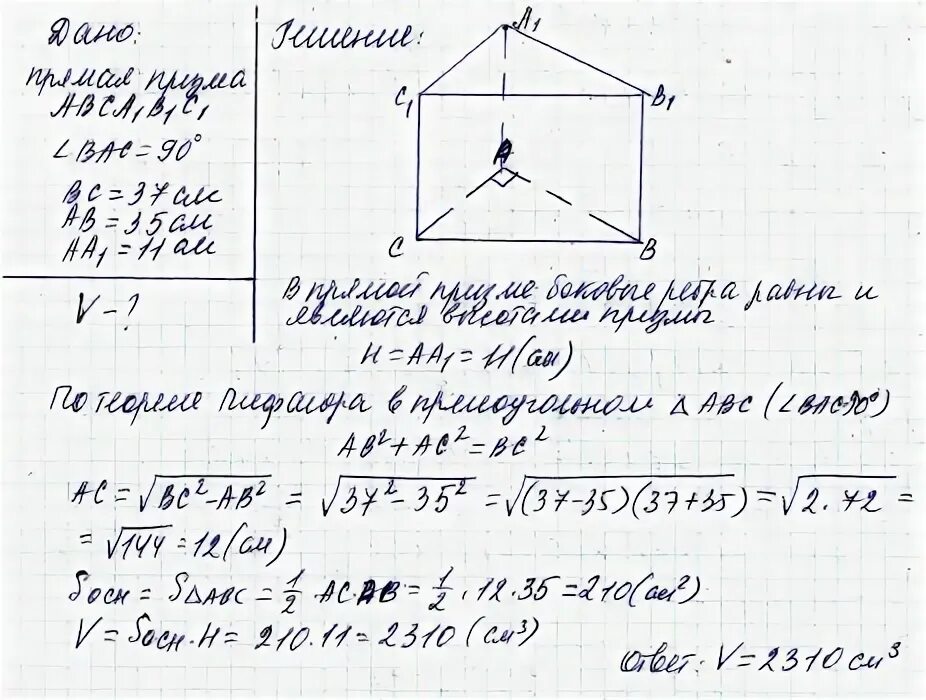 Дано:
прямая призма
ABCA₁B₁C₁
∠BAC = 90°
BC = 37 см
AB = 35 см
AA₁ = 11 см
V - ?
Решение:
A₁
C₁
B₁
A
C
B
В прямой призме боковые ребра равны и
являются высотами призмы
H = AA₁ = 11 (см)
По теореме Пифагора в прямоугольном △ ABC (∠BAC=90°)
AB² + AC² = BC²
AC = √BC² - AB² = √37² - 35² = √(37-35)(37+35) = √2·72 =
= √144 = 12 (см)
Sосн = S△ABC = 1/2 · AC·AB = 1/2 · 12·35 = 210 (см²)
V = Sосн·H = 210·11 = 2310 (см³)
Ответ: V = 2310 см³